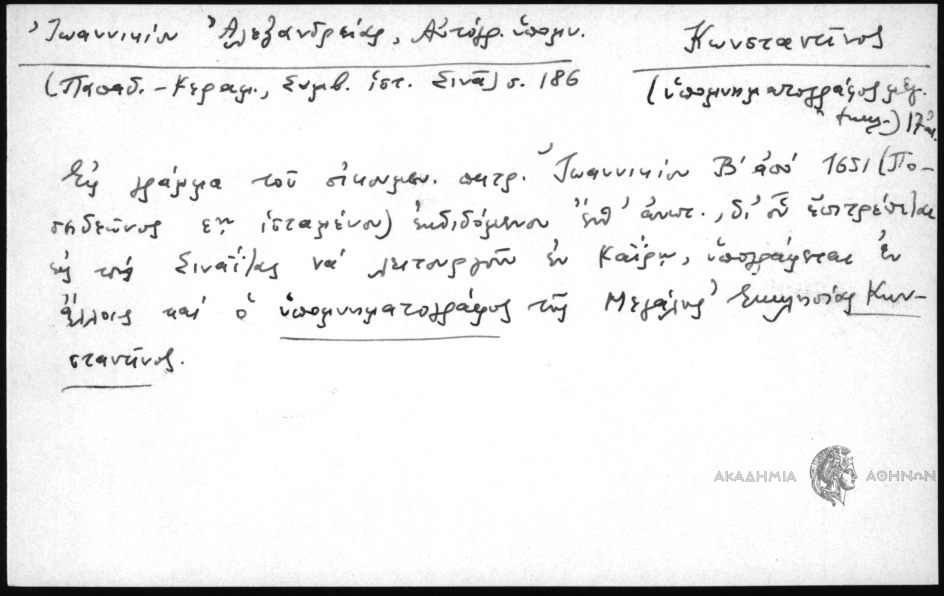 Ἰωαννικίου Ἀλεξανδρείας, Αὐτόγρ. ὑπομν.
Κωνσταντῖνος
(Παπαδ.-Κεραμ., Συμβ. ἱστ. Σινᾶ) σ. 186
(ὑπομνηματογράφος μεγ.
ἐκκλ.) 17 αἰ.
Εἰς γράμμα τοῦ οἰκουμεν. πατρ. Ἰωαννικίου Β' ἀπό 1651 (Πο-
σηδεῶνος ἱσταμένου) ἐκδιδόμενον ἐνθ' ἀνωτ., δι' οὗ ἐπιτρέπεται
εἰς τούς Σιναΐτας νά λειτουργοῦν ἐν Καΐρῳ, ὑπογράφεται ἐν
ἄλλοις καί ὁ ὑπομνηματογράφος τῆς Μεγάλης Ἐκκλησίας Κων-
σταντῖνος.
ΑΚΑΔΗΜΙΑ ΑΘΗΝΩΝ